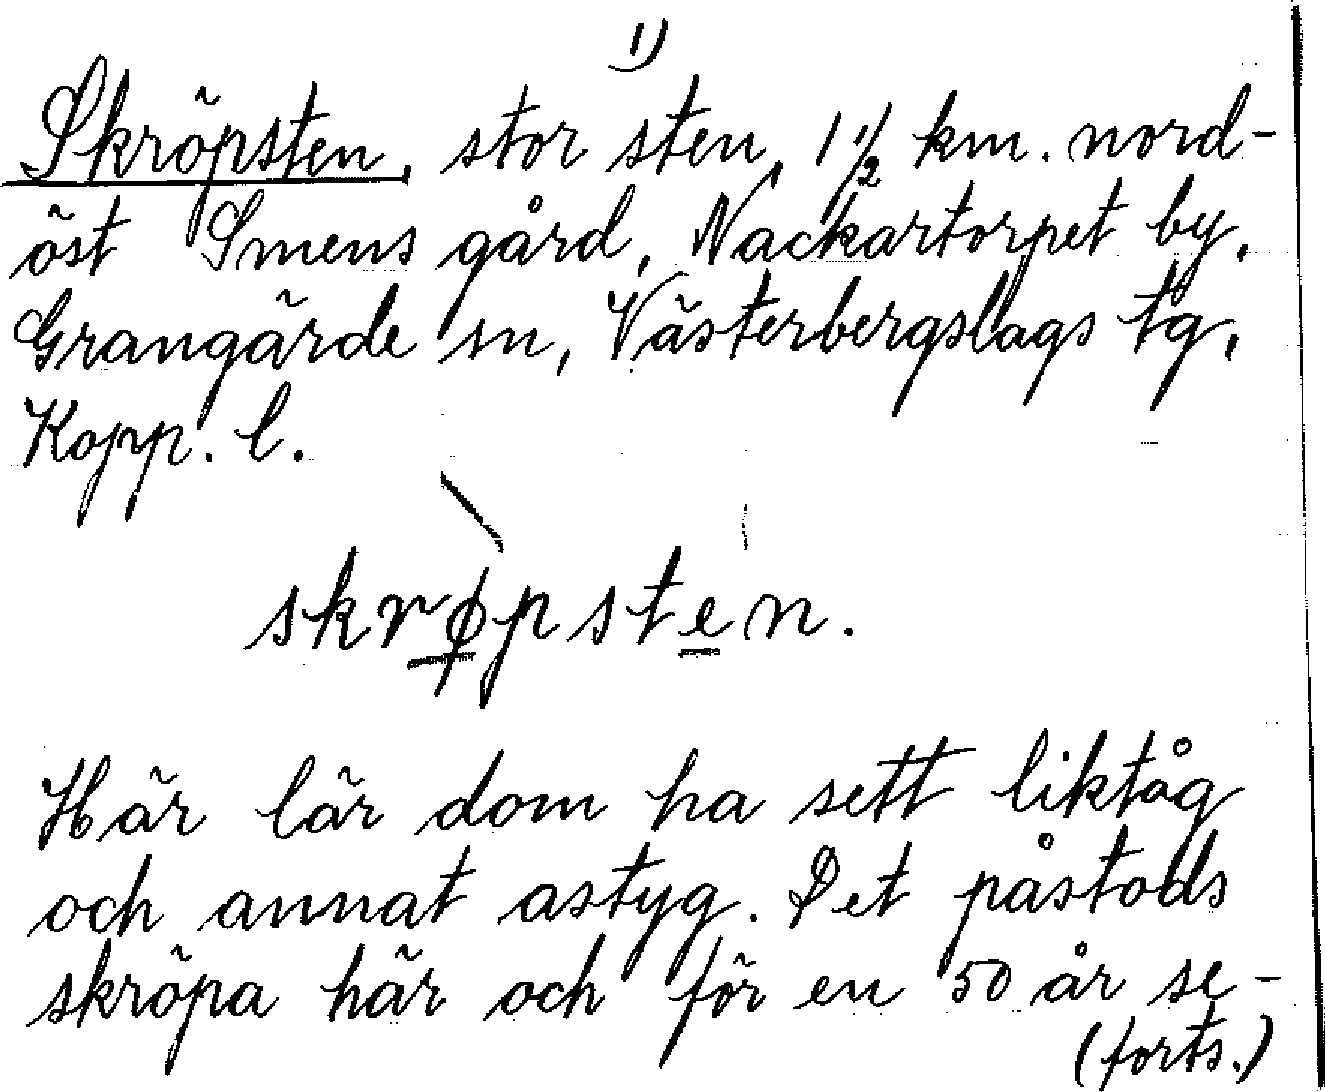 1)
Skröpsten, stor sten, 1 1/2 km. nord-
öst Smens gård, Nackartorpet by,
Grangärde sn, Västerbergslags tg,
Kopp. l.
skrø̱pste̱n.
Här lär dom ha sett liktåg
och annat astyg. Det påstods
skröpa här och för en 50 år se-
(forts.)